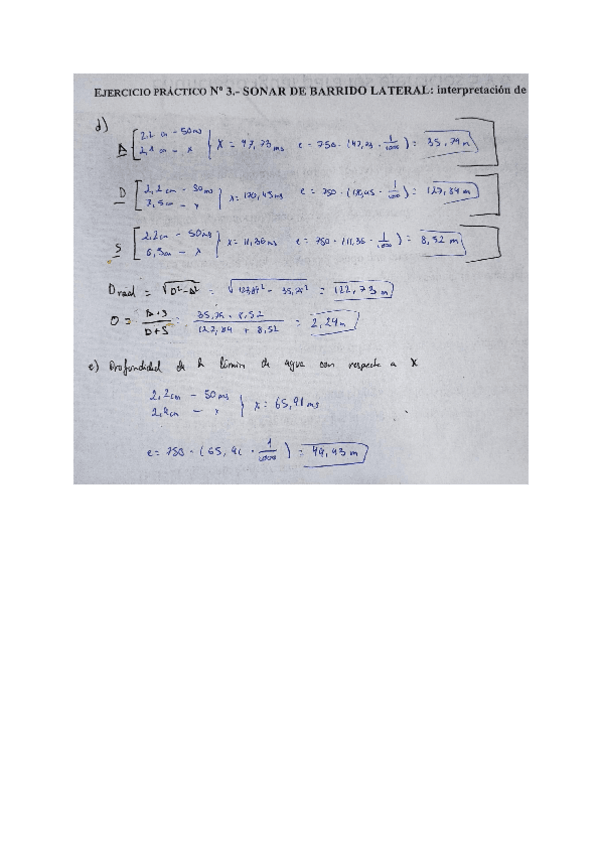 EJERCICIO PRÁCTICO Nº 3.- SONAR DE BARRIDO LATERAL: interpretación de
d)
A [ 2.2 cm - 50ms
2,1 cm - x } X = 47,73 ms e = 750 · (47,73 · 1/1000) = 35,79 m
D [ 2,2 cm - 50ms
7,5cm - x x = 170,45ms e = 750 · (170,45 · 1/1000) = 127,84 m
S [ 2,2cm - 50ms
0,5cm - x } x = 11,36ms e = 750 · (11,36 · 1/1000) = 8,52 m
Dreal = √D²-A² = √127,84² - 35,79² = 122,73 m
O = A·S / D+S = 35,79 · 8,52 / 127,84 + 8,52 = 2,24m
e) Profundidad de la lámin de agua con respecte a X
2,2cm - 50ms
2,9cm - x } x = 65,91 ms
e = 750 · (65,91 · 1/1000) = 49,43 m